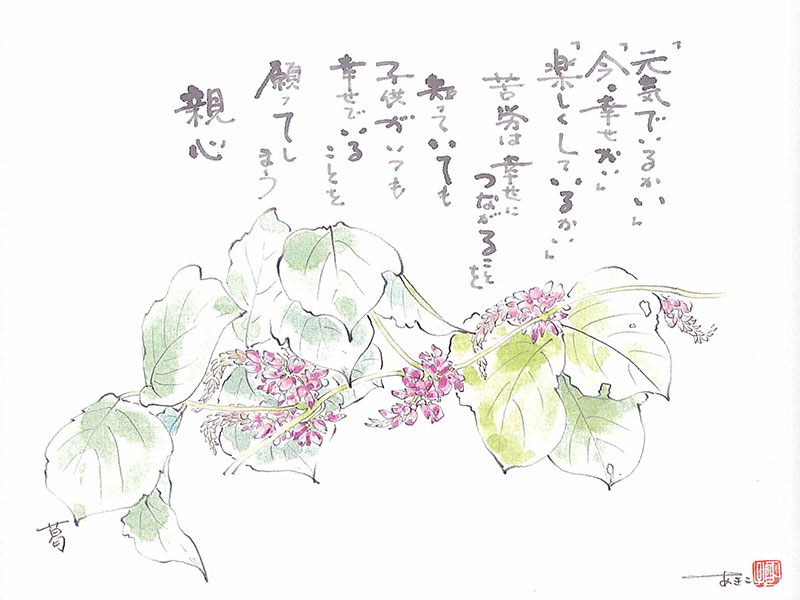 「元気でいるかい」
「今・幸せかい」
「楽しくしているかい」
苦労は幸せに
つながることを
知っていても
子供がいつも
幸せでいる
ことを
願ってし
まう
親心
葛
あきこ